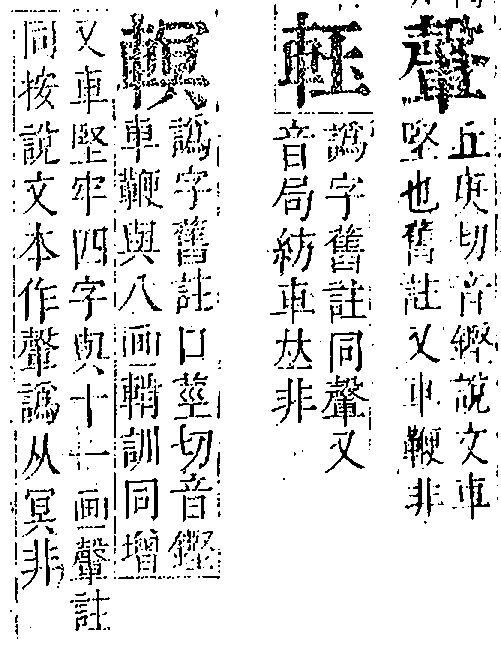 䡰
丘庚切音鏗說文車
堅也舊註又車鞕非
譌字舊註同䡰又
音局紡車𠀤非
譌字舊註口莖切音鏗
車鞕與八画訓同增
又車堅牢四字與十一画䡰註
同按說文本作䡰譌从冥非